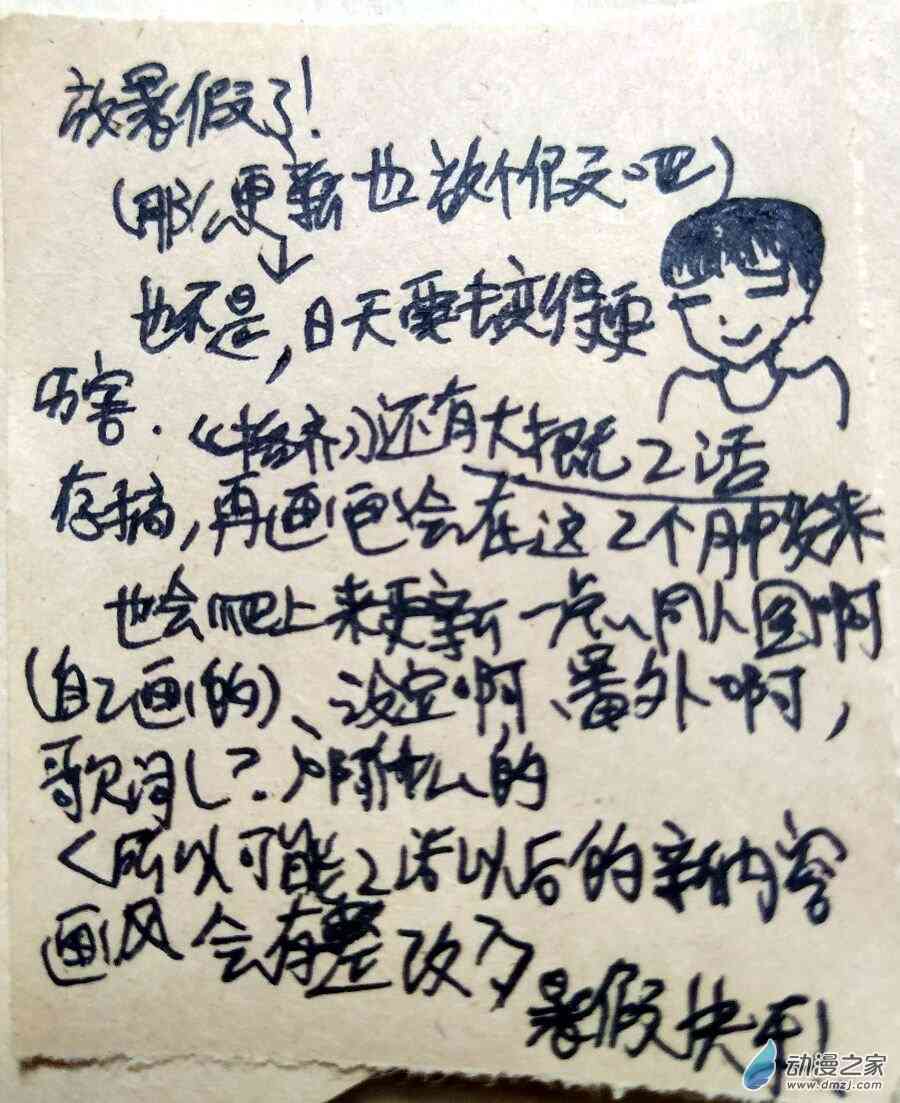 放暑假了!
(那么更新也放个假吧)
也不是,日天要去变得更
厉害.《格齐》还有大概2话
存稿,再画也会在这2个月中发来
也会爬上来更新一点同人图啊
(自己画的)、设定啊、番外啊,
歌词(?)啊什么的
<所以可能2话以后的新内容
画风会有整改>
暑假快乐!
动漫之家
www.dmzj.com